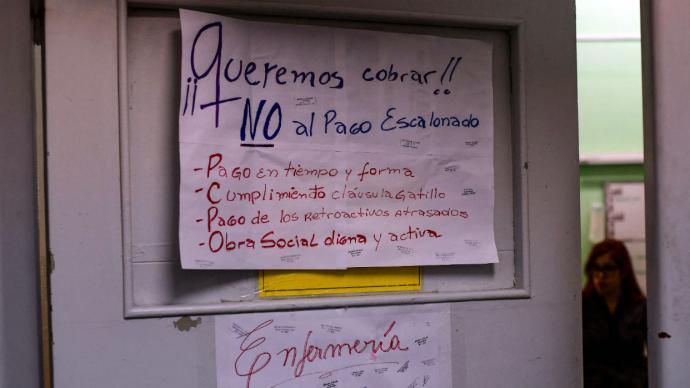 ¡¡Queremos cobrar!!
NO al Pago Escalonado
- Pago en tiempo y forma
- Cumplimiento cláusula Gatillo
- Pago de los Retroactivos Atrasados
- Obra Social digna y activa
Enfermería